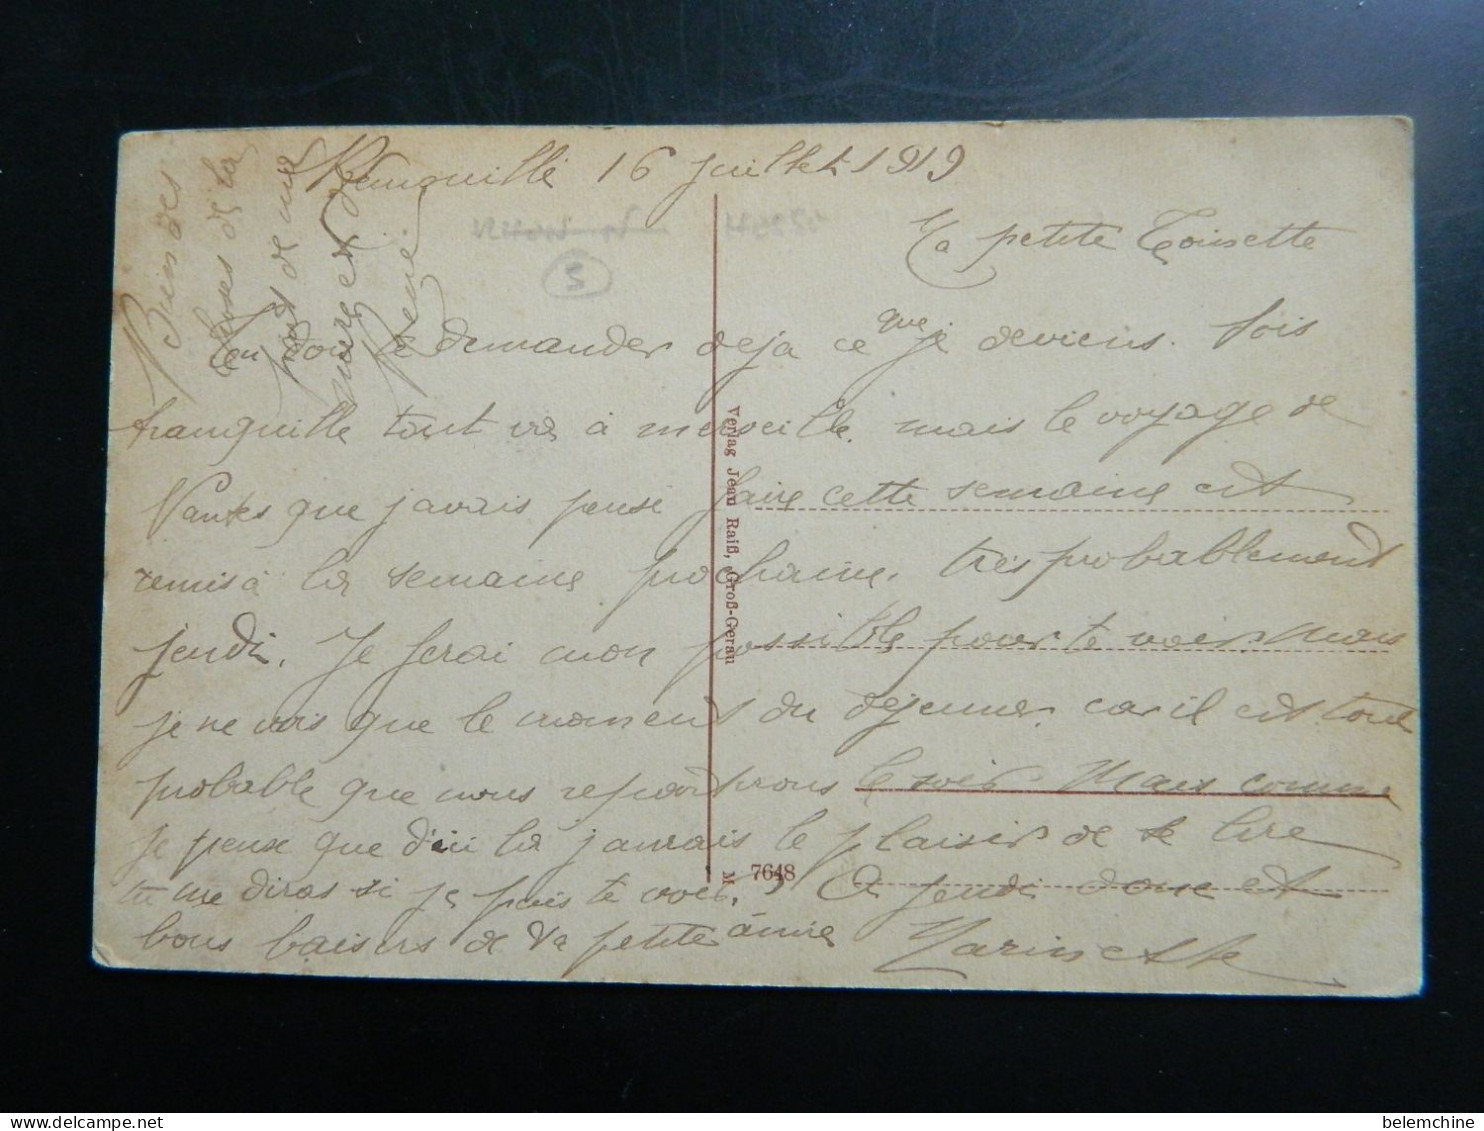 16 juillet 1919
Ma petite Toinette
demander deja ce que je deviens. Sois
tranquille tout va à merveille. mais le voyage de
Nantes que j'avais pensé faire cette semaine est
remis à la semaine prochaine. très probablement
jeudi. Je ferai mon possible pour te voir. Mais
je ne vois que le moment du déjeuner. car il est tout
probable que nous repartirons le soir. Mais comme
je pense que d'ici là j'aurais le plaisir de te lire
tu me diras si je puis te voir. A jeudi donc et
bons baisers de ta petite amie Marinette
Bien des
choses de la
part de ma
mère et de
Renée.
S
Verlag Jean Raiß, Groß-Gerau
M 7648
belemchine